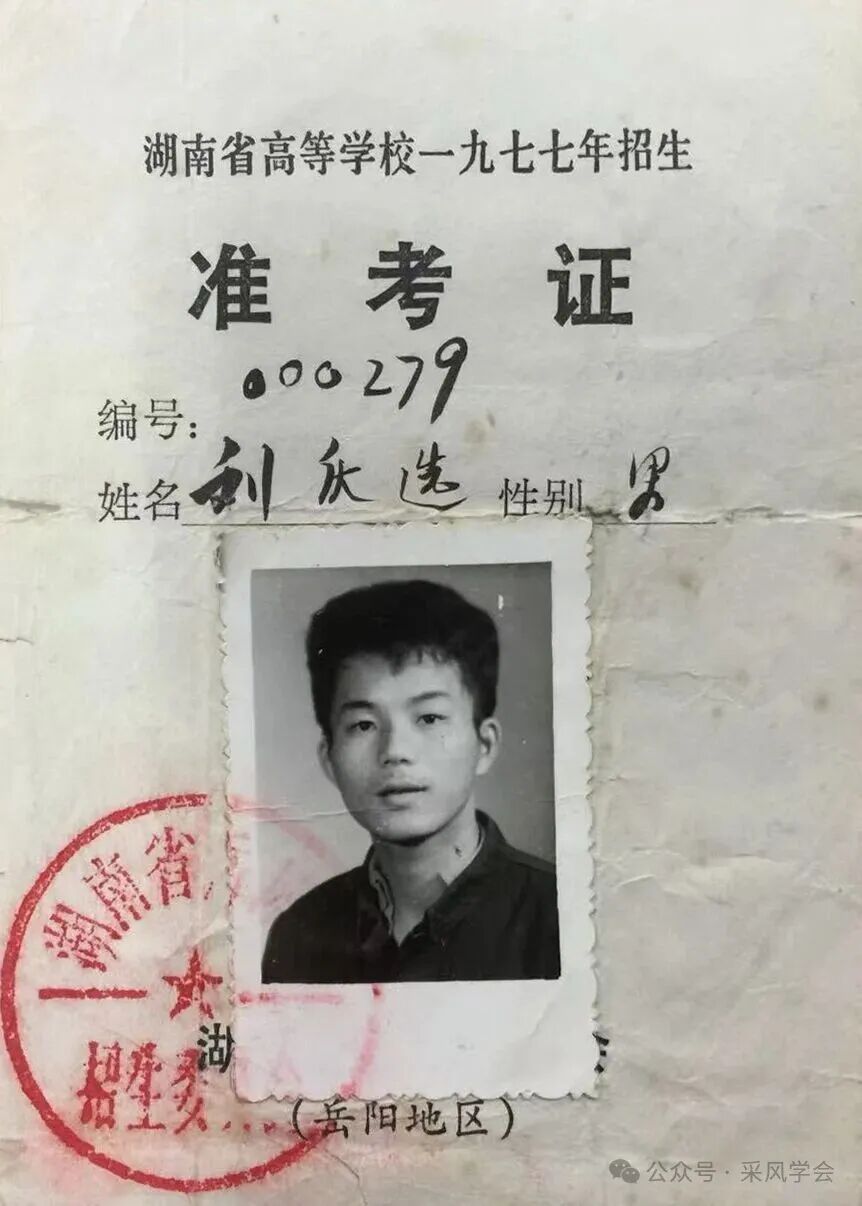 湖南省高等学校一九七七年招生
准考证
编号：000279
姓名 利庆选 性别 男
湖南省
招生委
湖
(岳阳地区)
公众号·采风学会